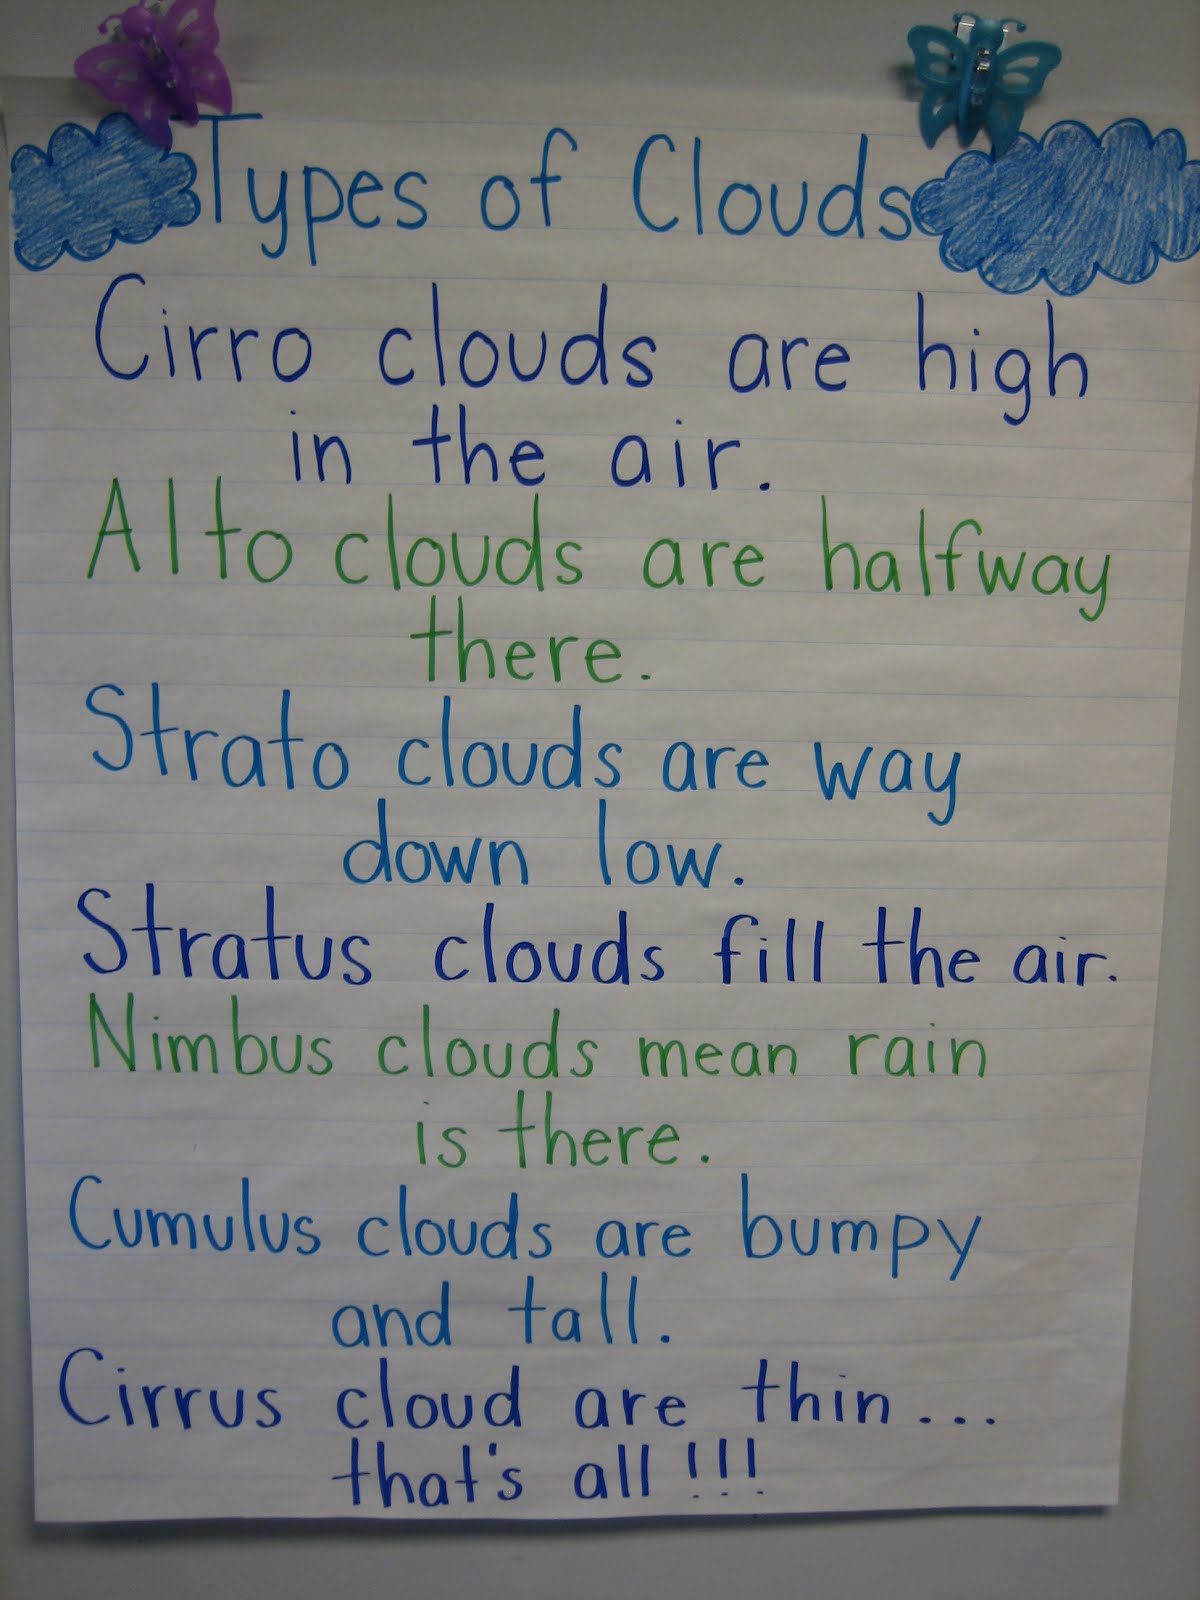 Types of Clouds
Cirro clouds are high
in the air.
Alto clouds are halfway
there.
Strato clouds are way
down low.
Stratus clouds fill the air.
Nimbus clouds mean rain
is there.
Cumulus clouds are bumpy
and tall.
Cirrus cloud are thin...
that's all!!!